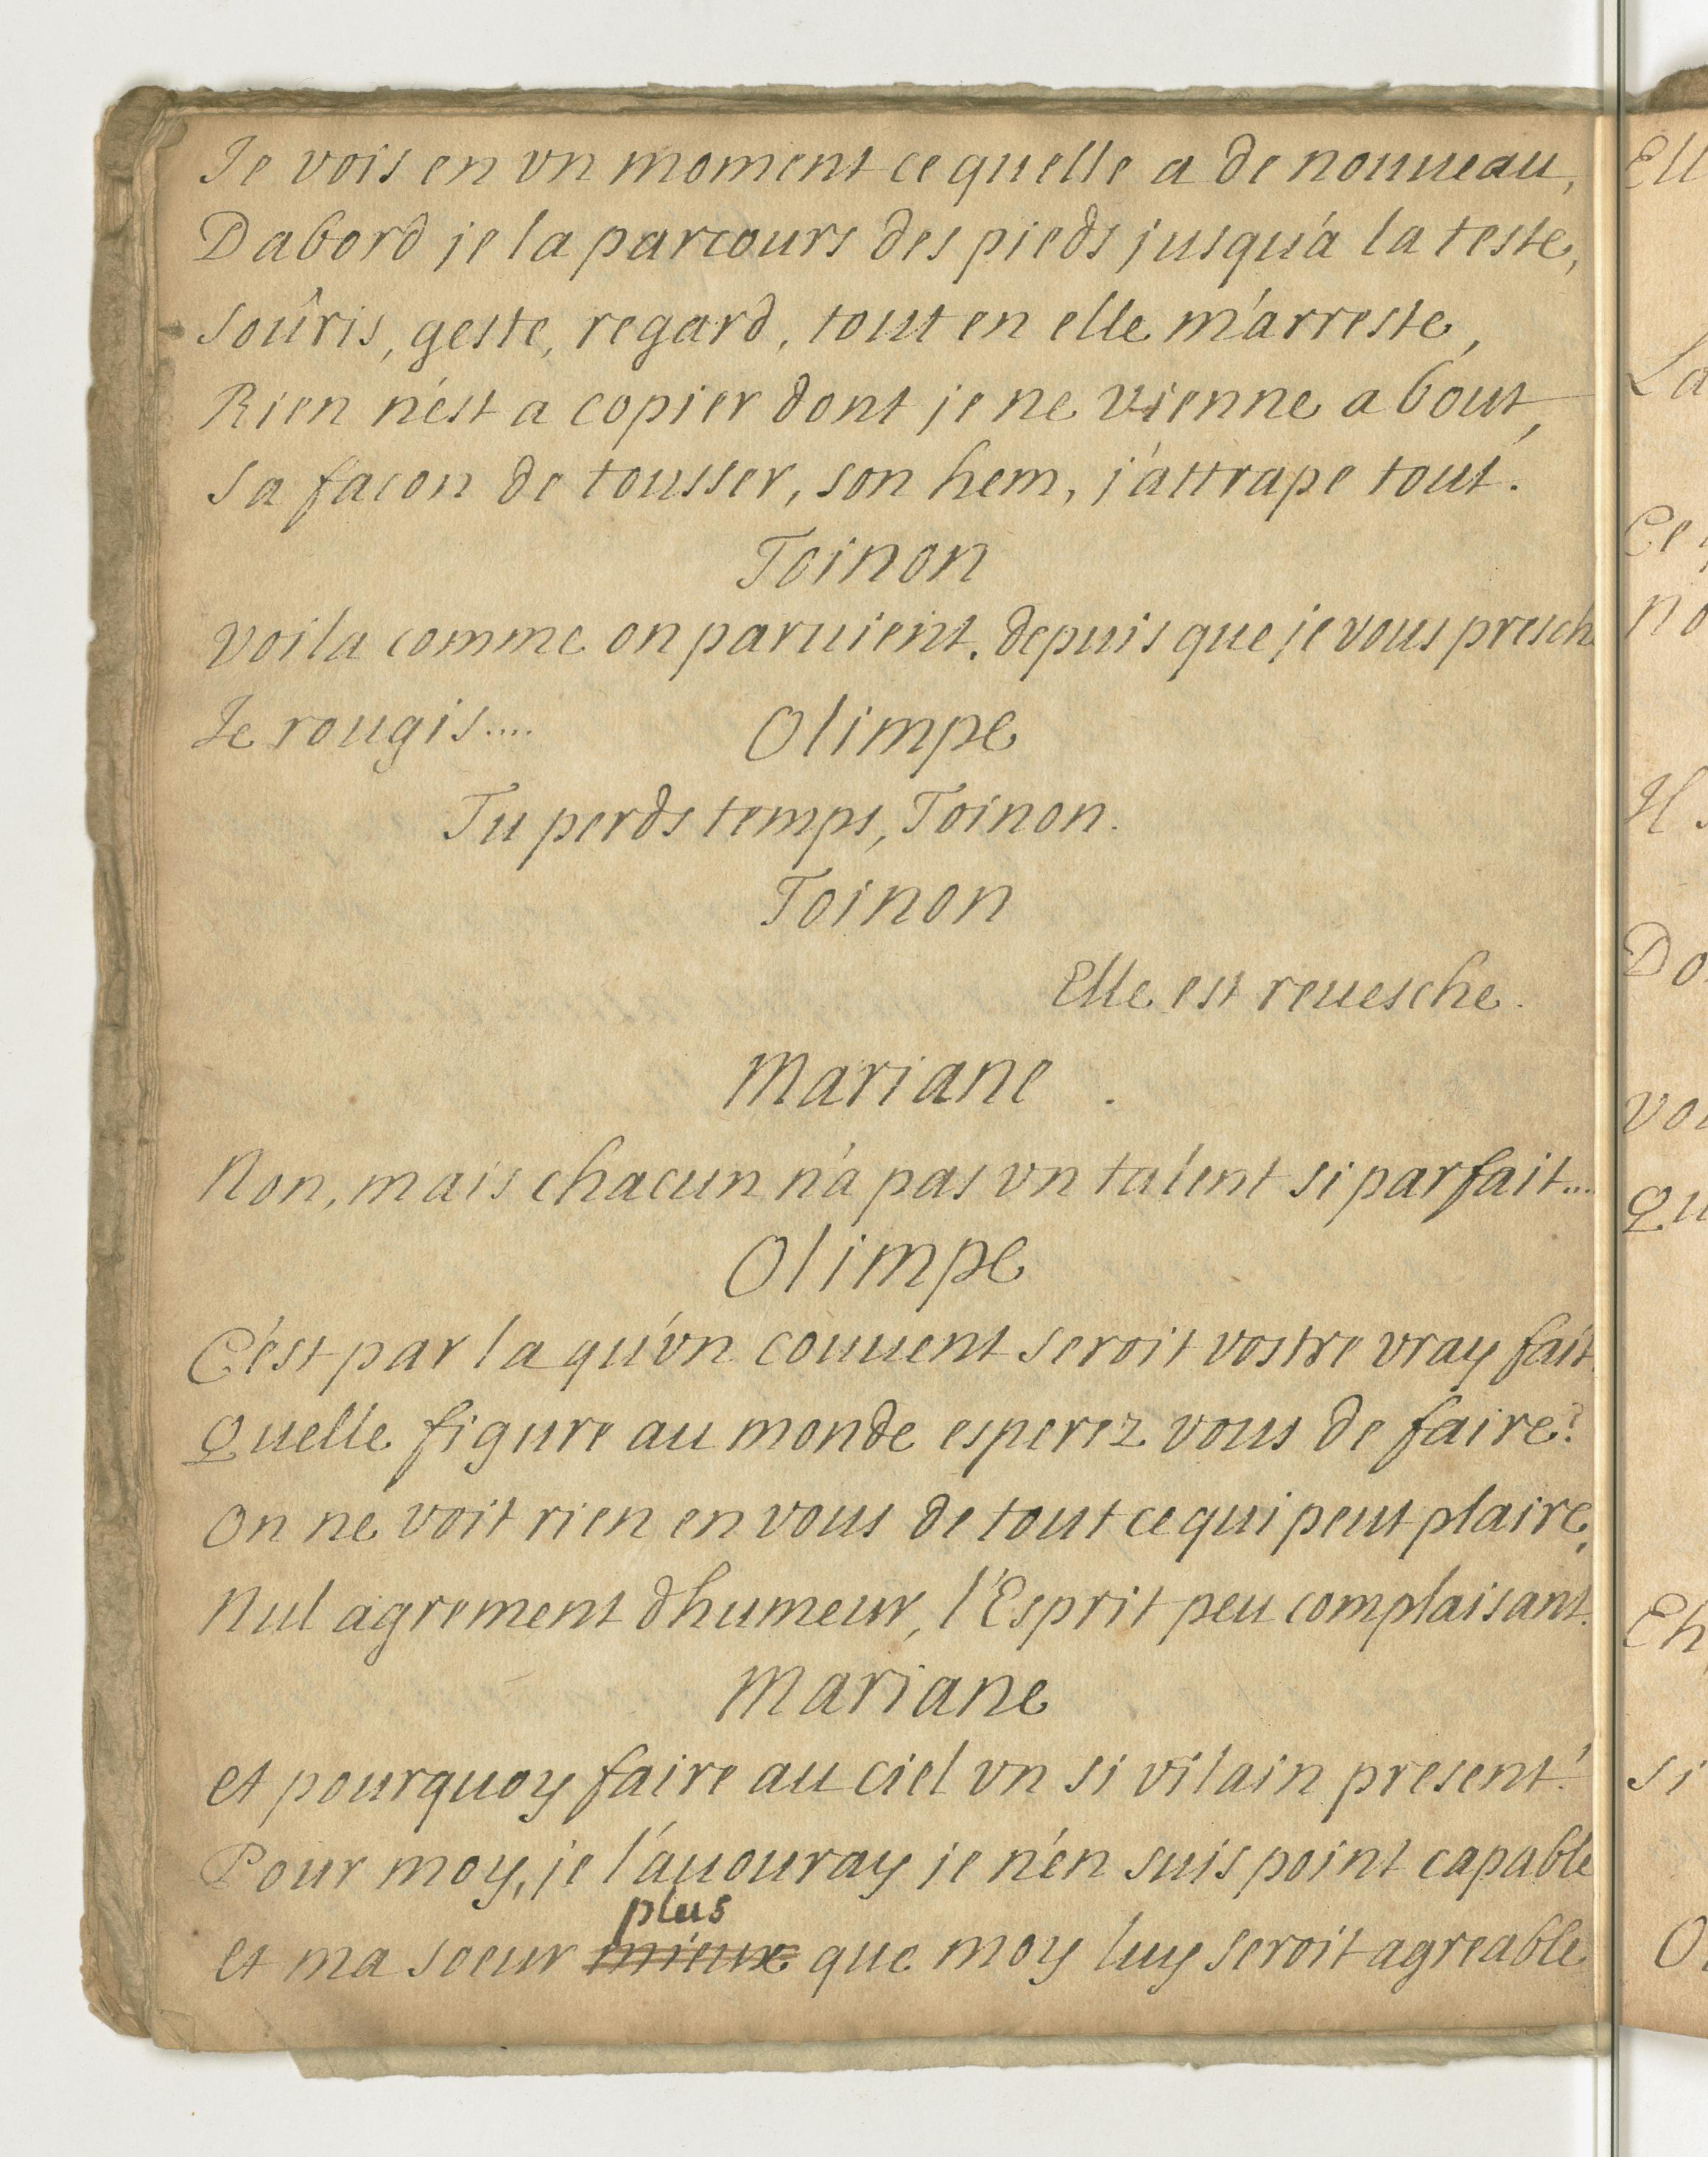 Je vois en vn moment ce quelle a de nouueau,
Dabord je la parcours des pieds jusqu'a la teste,
soûris, geste, regard, tout en elle m'arreste,
Rien n'est a copier dont je ne vienne a bout,
sa facon de tousser, son hem, j'attrape tout.
Toinon
voila comme on paruient. depuis que je vous presch
Je rougis....
Olimpe
Tu perds temps, Toinon.
Toinon
Elle est reuesche.
Mariane .
Non, mais chacun n'a pas vn talent si parfait....
Olimpe
C'est par la qu'vn couuent seroit vostre vray fait.
Quelle figure au monde esperez vous de faire?
On ne voit rien en vous de tout ce qui peut plaire,
Nul agrement dhumeur, l'Esprit peu complaisant.
Mariane
et pourquoy faire au ciel vn si vilain present!
Pour moy, je l'auouray je n'en suis point capable
plus
et ma soeur mieux que moy luy seroit agreable
Ell
La
Ce
no
Il s
Do
voi
Qu
Eh
si